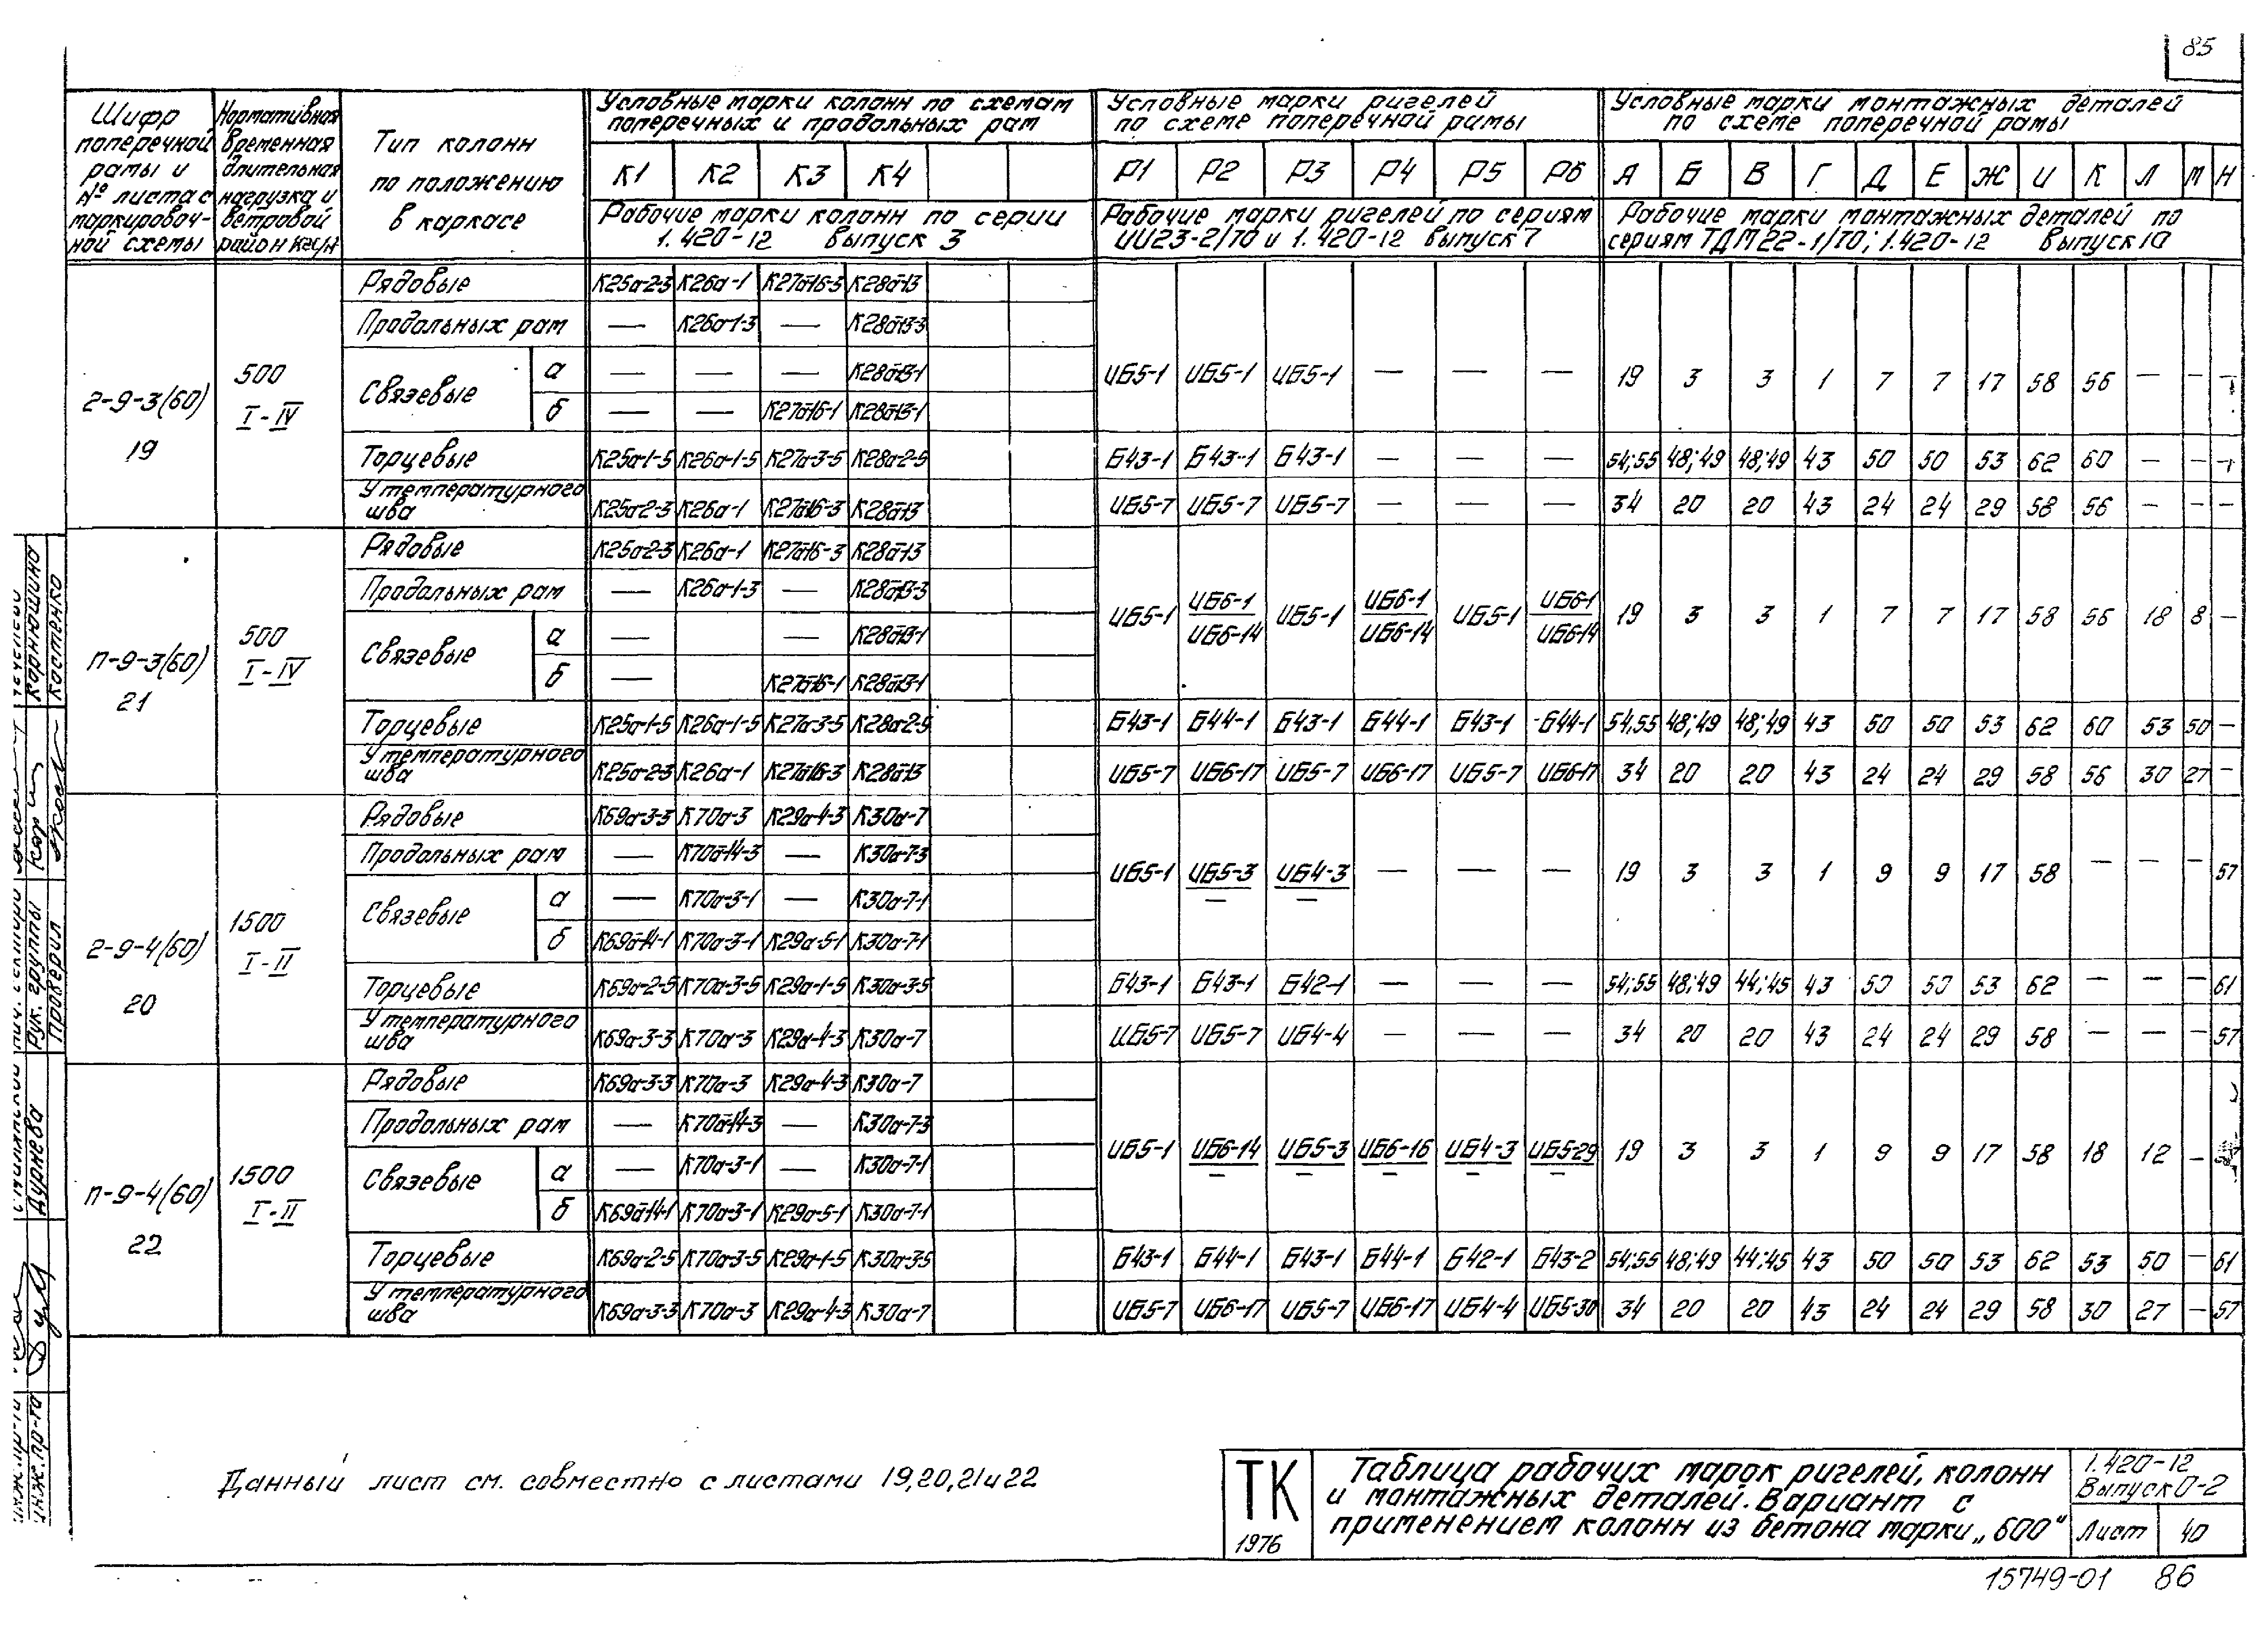 85
Шифр поперечной рамы и № листа с маркировоч-ной схемы
Нормативная временная длительная нагрузка и ветровой район кгс/м
Тип колонн по положению в каркасе
Условные марки колонн по схемам поперечных и продольных рам
Условные марки ригелей по схеме поперечной рамы
Условные марки монтажных деталей по схеме поперечной рамы
К1 К2 К3 К4 Р1 Р2 Р3 Р4 Р5 Р6 А Б В Г Д Е Ж И К Л М Н
Рабочие марки колонн по серии 1.420-12 выпуск 3
Рабочие марки ригелей по сериям ИИ23-2/70 и 1.420-12 выпуск 7
Рабочие марки монтажных деталей по сериям ТДМ22-1/70; 1.420-12 выпуск 10
2-9-3(60) 19
500 I-IV
Рядовые К25а-2-3 К26а-1 К27а-16-3 К28а-13
Продольных рам — К26а-1-3 — К28а-13-3
Связевые а — — — К28а-13-1
б — — К27а-16-1 К28а-13-1
ИБ5-1 ИБ5-1 ИБ5-1 — — — 19 3 3 1 7 7 17 58 56 — —
Торцевые К25а-1-5 К26а-1-5 К27а-3-5 К28а-2-5 Б43-1 Б43-1 Б43-1 — — — 54;55 48;49 48;49 43 50 50 53 62 60 — —
У температурного шва К25а-2-3 К26а-1 К27а-16-3 К28а-13 ИБ5-7 ИБ5-7 ИБ5-7 — — — 34 20 20 43 24 24 29 58 56 — — —
П-9-3(60) 21
500 I-IV
Рядовые К25а-2-3 К26а-1 К27а-16-3 К28а-13
Продольных рам — К26а-1-3 — К28а-13-3
Связевые а — — К28а-13-1
б — К27а-16-1 К28а-13-1
ИБ5-1 ИБ6-1/ИБ6-14 ИБ5-1 ИБ6-1/ИБ6-14 ИБ5-1 ИБ6-1/ИБ6-14 19 3 3 1 7 7 17 58 56 18 8 —
Торцевые К25а-1-5 К26а-1-5 К27а-3-5 К28а-2-5 Б43-1 Б44-1 Б43-1 Б44-1 Б43-1 Б44-1 54;55 48;49 48;49 43 50 50 53 62 60 53 50 —
У температурного шва К25а-2-3 К26а-1 К27а-16-3 К28а-13 ИБ5-7 ИБ6-17 ИБ5-7 ИБ6-17 ИБ5-7 ИБ6-17 34 20 20 43 24 24 29 58 56 30 27 —
2-9-4(60) 20
1500 I-II
Рядовые К69а-3-3 К70а-3 К29а-4-3 К30а-7
Продольных рам — К70а-14-3 — К30а-7-3
Связевые а — К70а-3-1 — К30а-7-1
б К69а-14-1 К70а-3-1 К29а-5-1 К30а-7-1
ИБ5-1 ИБ5-3/— ИБ4-3/— — — — 19 3 3 1 9 9 17 58 — — — 57
Торцевые К69а-2-5 К70а-3-5 К29а-1-5 К30а-3-5 Б43-1 Б43-1 Б42-1 — — — 54;55 48;49 44;45 43 50 50 53 62 — — — 61
У температурного шва К69а-3-3 К70а-3 К29а-4-3 К30а-7 ИБ5-7 ИБ5-7 ИБ4-4 — — — 34 20 20 43 24 24 29 58 — — — 57
П-9-4(60) 22
1500 I-II
Рядовые К69а-3-3 К70а-3 К29а-4-3 К30а-7
Продольных рам — К70а-14-3 — К30а-7-3
Связевые а — К70а-3-1 — К30а-7-1
б К69а-14-1 К70а-3-1 К29а-5-1 К30а-7-1
ИБ5-1 ИБ6-14/— ИБ5-3/— ИБ6-16/— ИБ4-3/— ИБ5-29/— 19 3 3 1 9 9 17 58 18 12 —
Торцевые К69а-2-5 К70а-3-5 К29а-1-5 К30а-3-5 Б43-1 Б44-1 Б43-1 Б44-1 Б42-1 Б43-2 54;55 48;49 44;45 43 50 50 53 62 53 50 — 61
У температурного шва К69а-3-3 К70а-3 К29а-4-3 К30а-7 ИБ5-7 ИБ6-17 ИБ5-7 ИБ6-17 ИБ4-4 ИБ5-30 34 20 20 43 24 24 29 58 30 27 — 57
Корнюшина
Костенко
Рук. группы
Проверил
Дурнева
Данный лист см. совместно с листами 19,20,21и22
ТК
1976
Таблица рабочих марок ригелей, колонн
и монтажных деталей. Вариант с
применением колонн из бетона марки „600"
1.420-12
Выпуск 0-2
Лист 40
15749-01 86